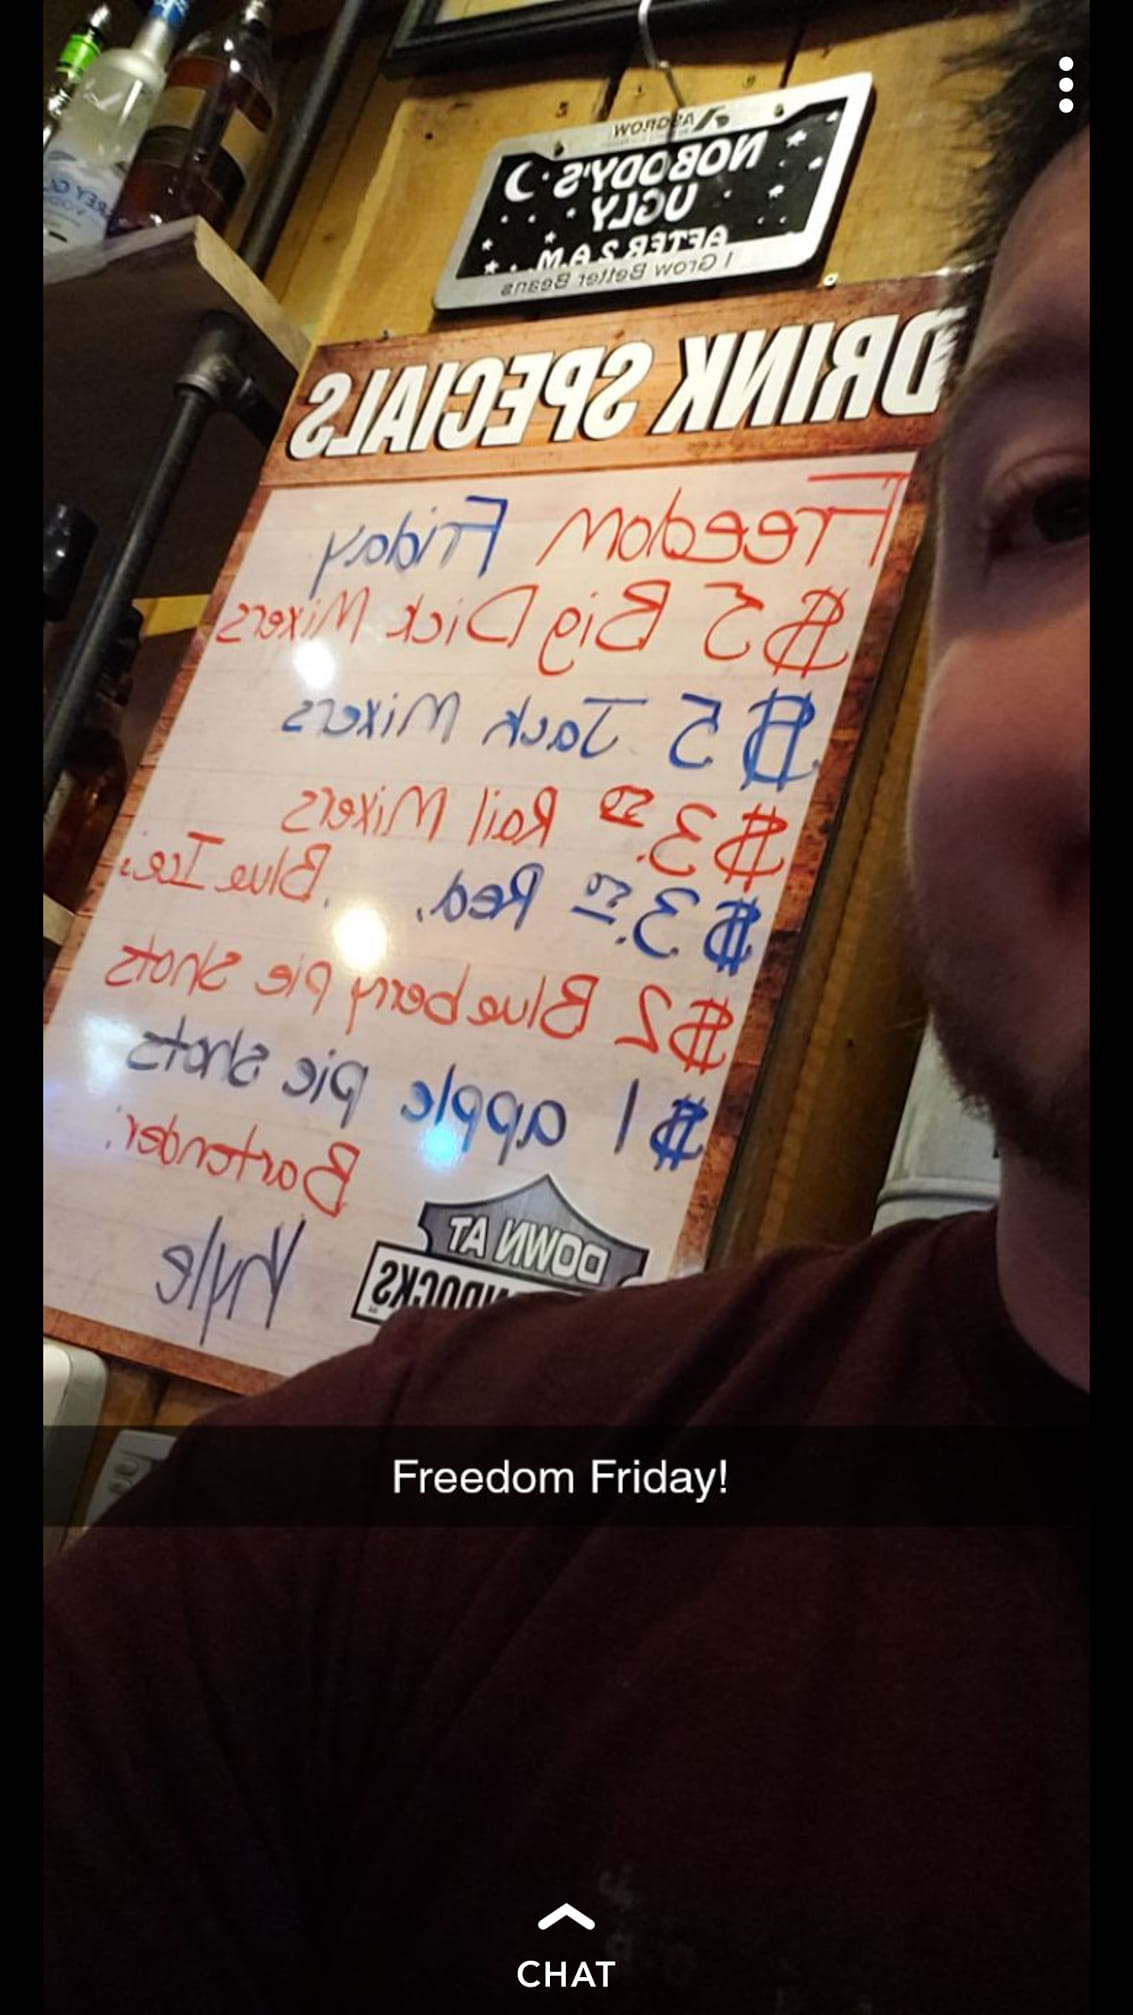 GREY GO
ASGROW
NOBODY'S
UGLY
AFTER 2 A.M.
I Grow Better Beans
DRINK SPECIALS
Freedom Friday
$5 Big Dick Mixers
$5 Jack Mixers
$3.50 Rail Mixers
$3.50 Red. Blue. Ice.
$2 Blueberry pie shots
$1 apple pie shots
Bartender:
Kyle
DOWN AT
NDOCKS
Freedom Friday!
CHAT